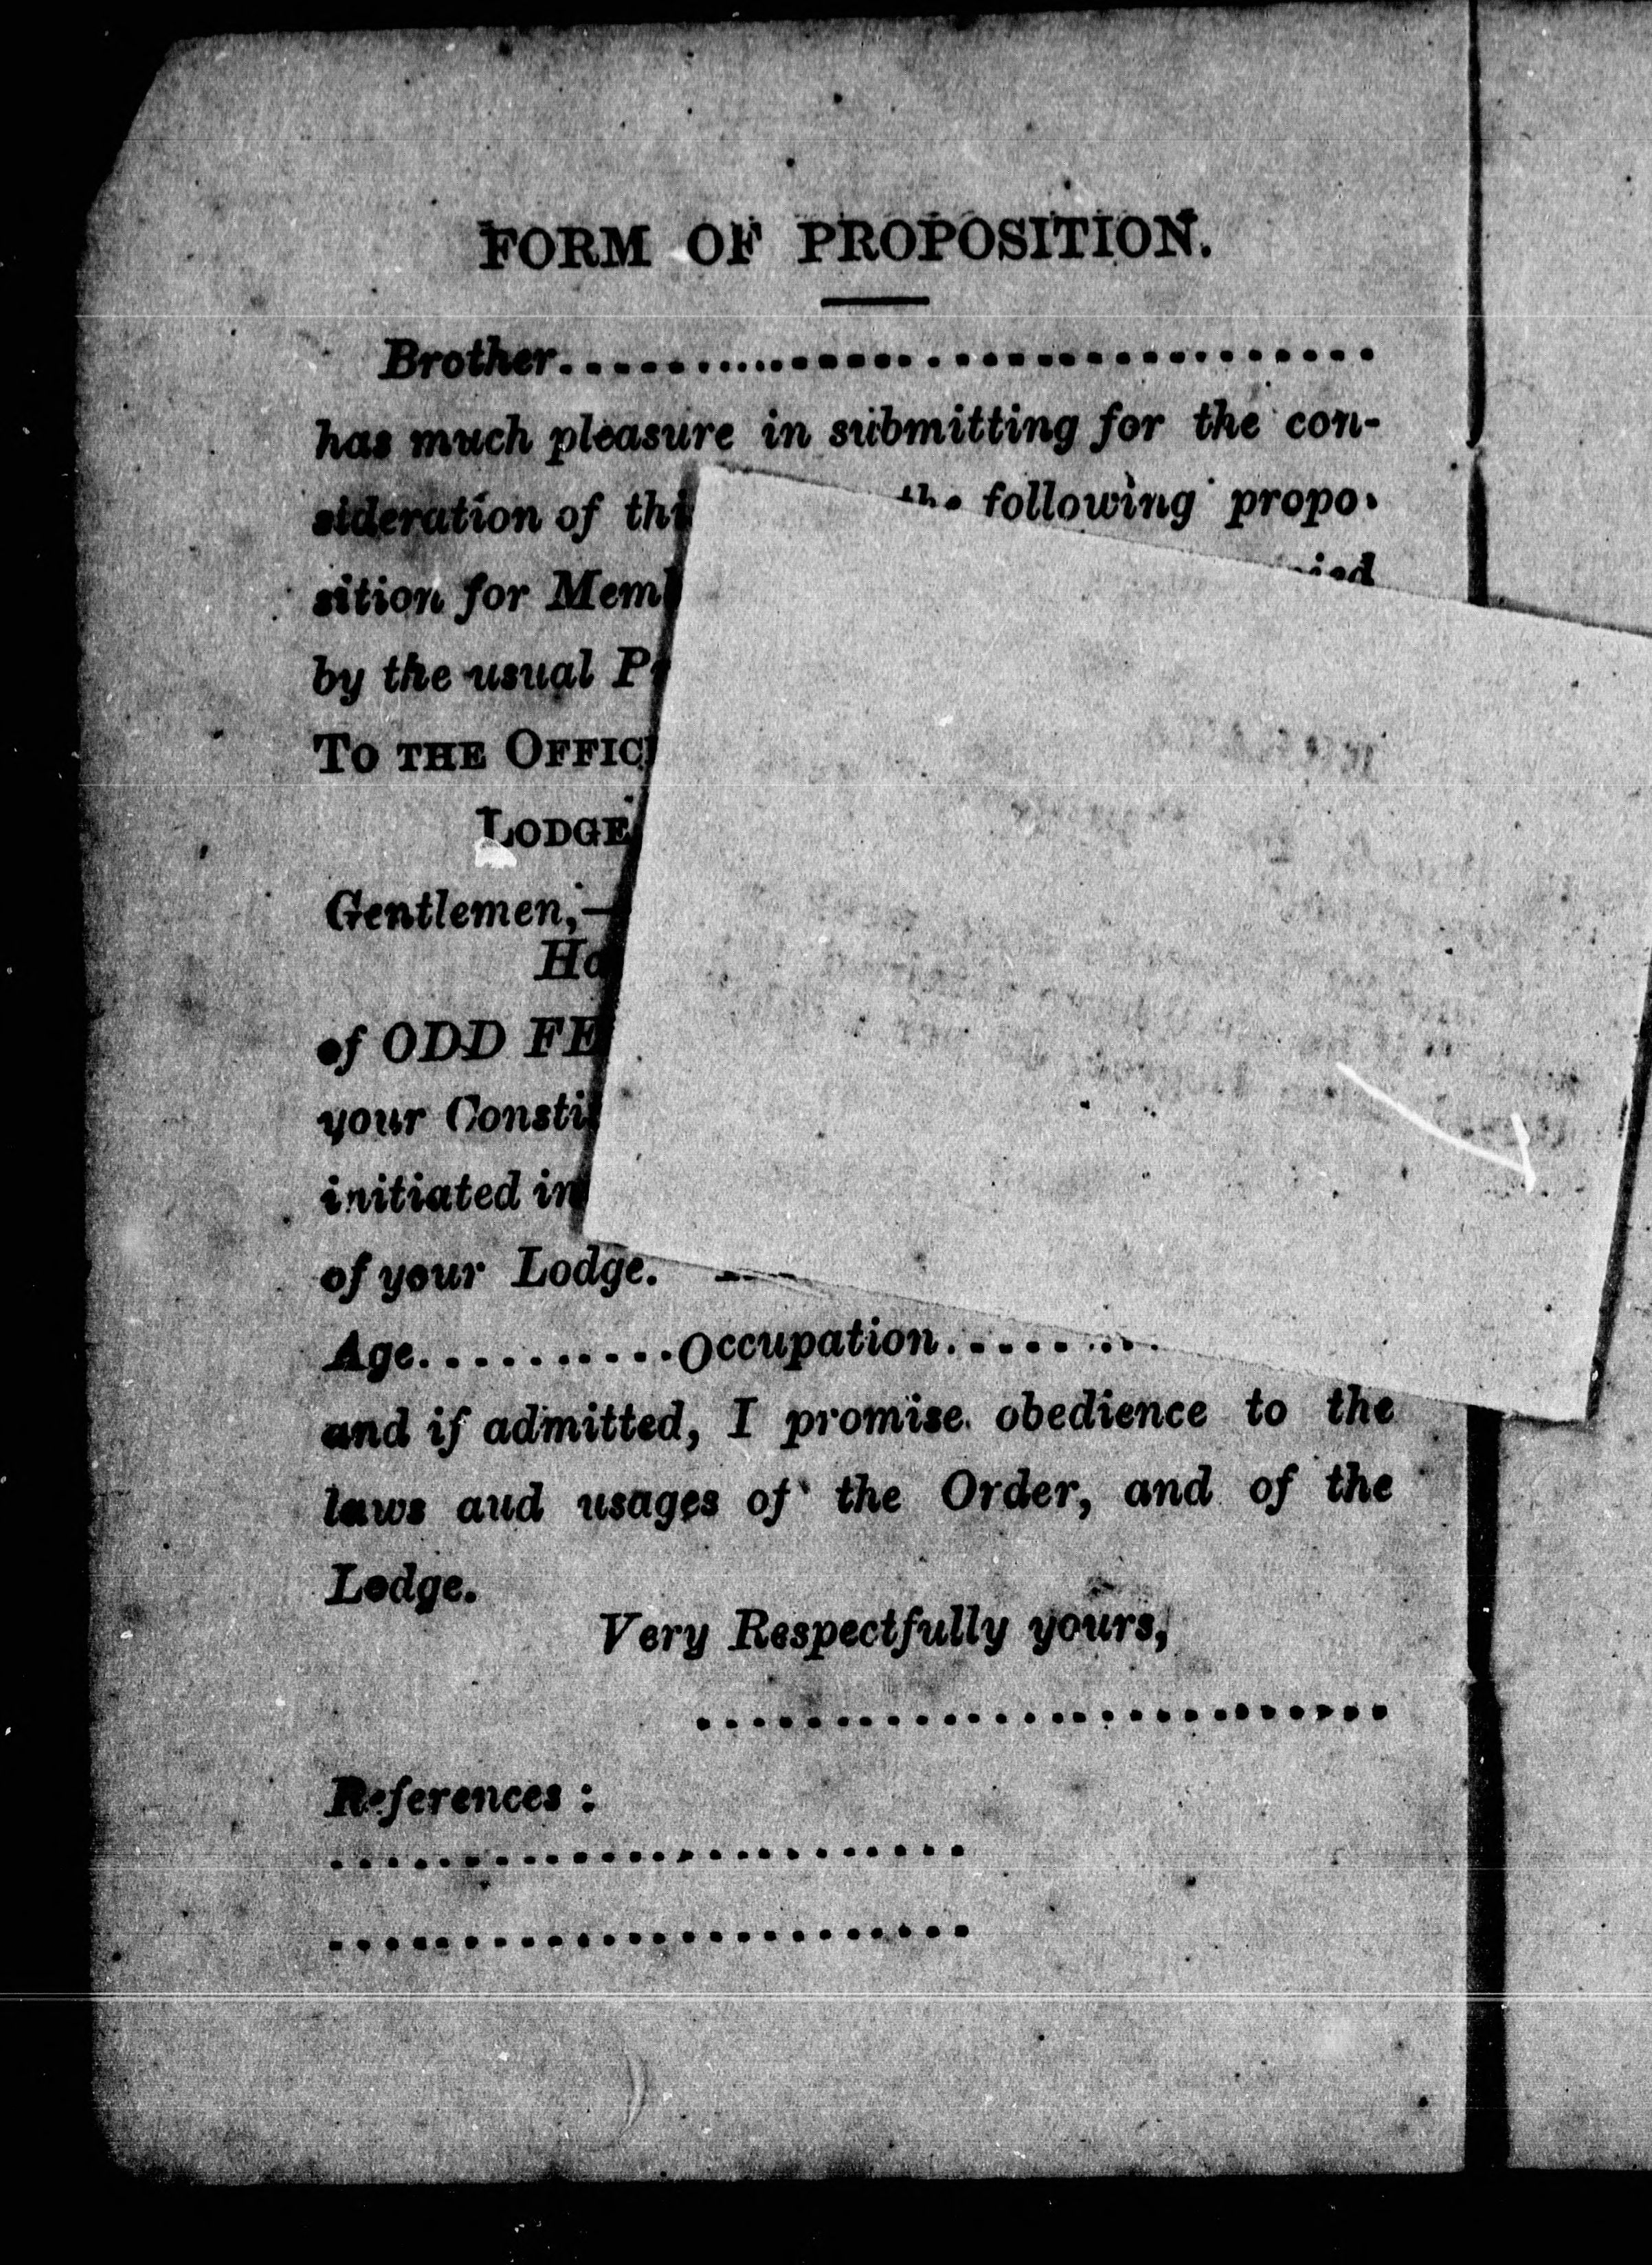 FORM OF PROPOSITION.
Brother..............................
has much pleasure in submitting for the con-
sideration of thi the following propo-
sition for Mem
by the usual P
TO THE OFFIC
LODGE
Gentlemen,—
Ho
of ODD FE
your Consti
initiated in
of your Lodge.
Age..........Occupation........
and if admitted, I promise obedience to the
laws aud usages of the Order, and of the
Lodge.
Very Respectfully yours,
..........................
References :
........................
........................